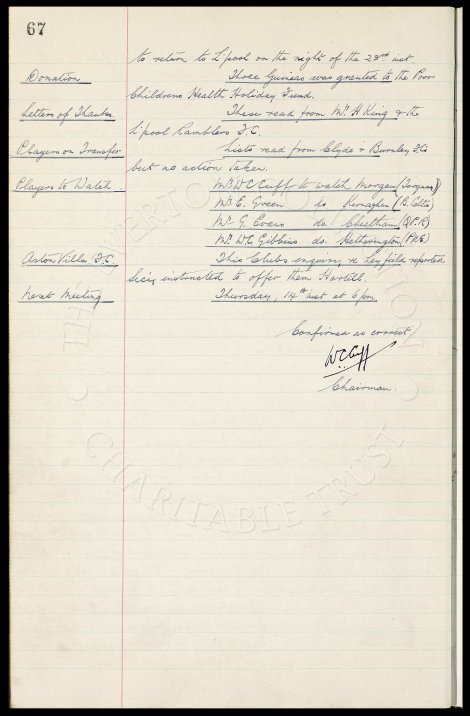 67
to return to L'pool on the night of the 23rd inst.
Donation Three Guineas was granted to the Poor
Childrens Health Holiday Fund.
Letters of Thanks. These read from Mr. A King & the
L'pool Ramblers F.C.
Players on Transfer Lists read from Clyde & Burnley F.Cs
but no action taken.
Players to Watch Mr. W C Cuff to watch Morgan (Torquay)
Mr. E. Green do Kernaghan (B. Celtic)
Mr. G. Evans do. Cheetham (Q.P.R)
Mr. W. C Gibbins do. Hetherington (P.N.E)
Aston Villa F.C. This Clubs enquiry re Leyfield reported
Secy instructed to offer them Hartill.
Next Meeting Thursday, 14th inst at 6 pm.
Confirmed as correct,
W.C. Cuff
Chairman.
CHARITABLE TRUST